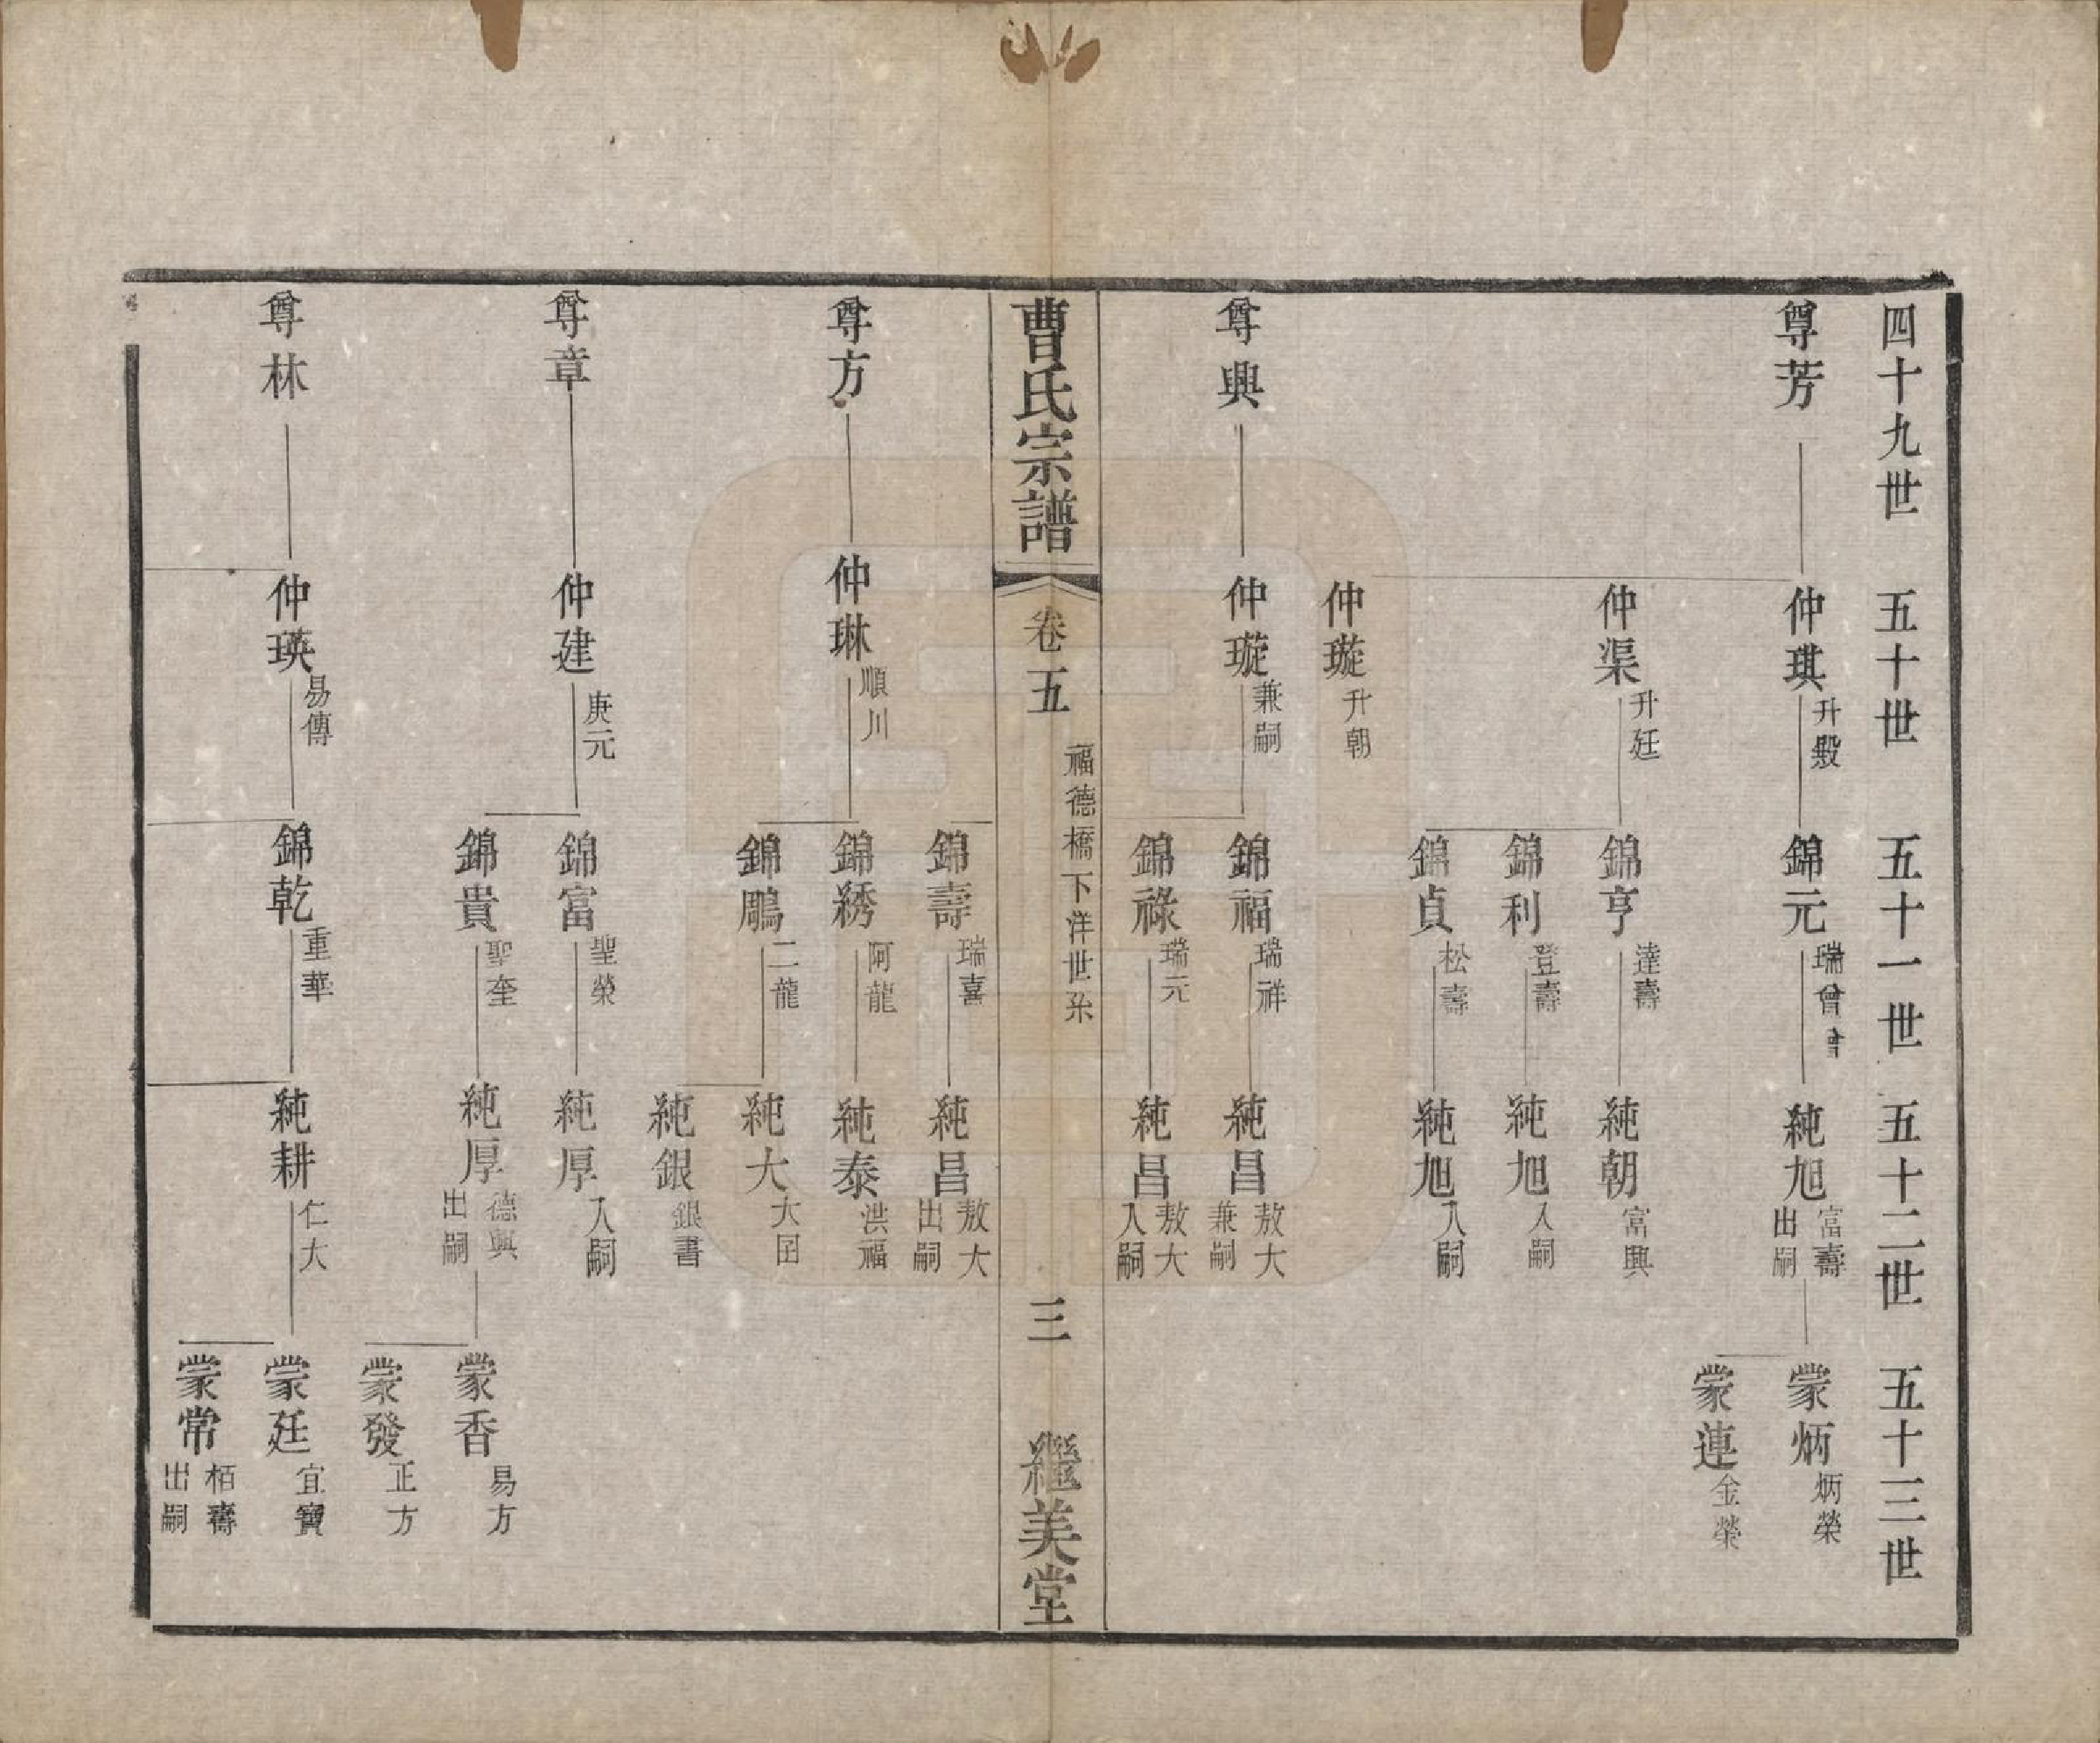 四十九世　五十世　五十一世　五十二世　五十三世
尊芳　仲琪　升殿　錦元　瑞曾　純旭　富壽　出嗣　蒙炳　炳榮
蒙連　金榮
仲渠　升廷　錦亨　達壽　純朝　富興
錦利　登壽　純旭　入嗣
錦貞　松壽　純旭　入嗣
仲璇　升朝
尊興　仲璇　兼嗣　錦福　瑞祥　純昌　敖大　兼嗣
錦祿　瑞元　純昌　敖大　入嗣
曹氏宗譜　卷五　福德橋下洋世系　三　繼美堂
錦壽　瑞喜　純昌　敖大　出嗣
尊方　仲琳　順川　錦綉　阿龍　純泰　洪福
錦鵰　二龍　純大　大囝
純銀　銀書
尊章　仲建　庚元　錦富　聖榮　純厚　入嗣
錦貴　聖奎　純厚　德興　出嗣　蒙香　易方
蒙發　正方
尊林　仲瑛　易傳　錦乾　重華　純耕　仁大　蒙廷　宜寶
蒙常　栢壽　出嗣